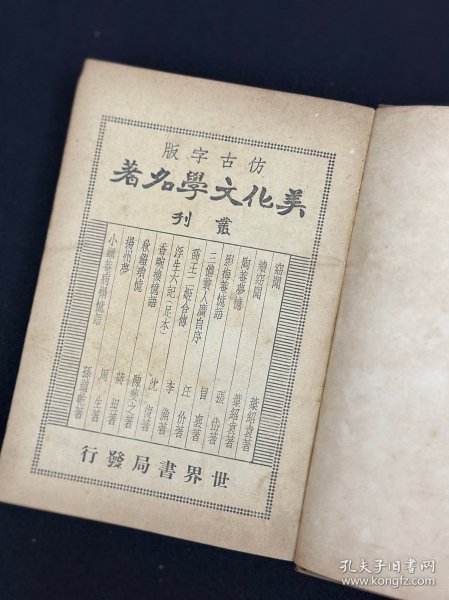 仿古字版
美化文學名著
叢刊
窈聞 葉紹袁著
續窈聞 葉紹袁著
陶菴夢憶 張岱著
影梅菴憶語 冒襄著
三儂贅人廣自序 汪价著
喬王二姬合傳 李漁著
浮生六記(足本) 沈復著
香畹樓憶語 陳裴之著
秋鐙瑣憶 蔣坦著
揚州夢 周生著
小螺菴病榻憶語 孫道乾著
世界書局發行
孔夫子旧书网
www.kongfz.com